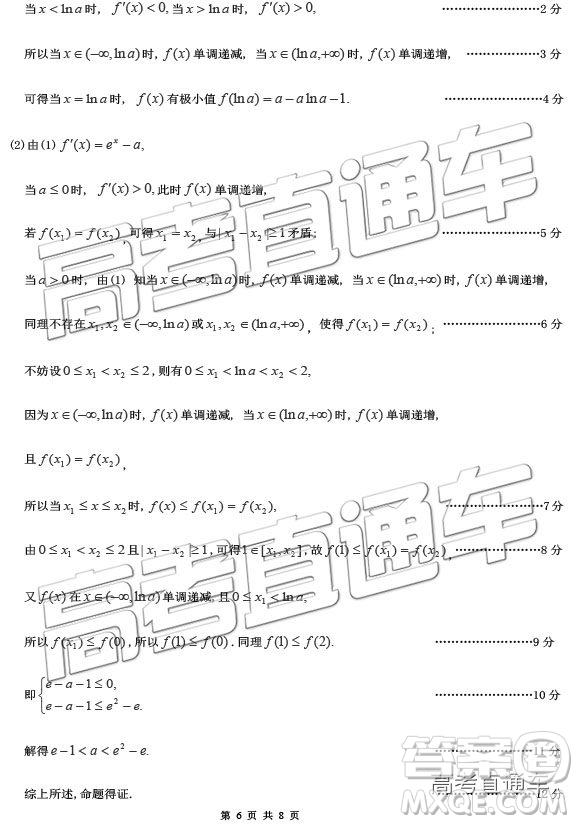 当 x < ln a 时, f′(x) < 0, 当 x > ln a 时, f′(x) > 0, ························2 分
所以当 x∈(−∞,ln a) 时, f(x) 单调递减, 当 x∈(ln a,+∞) 时, f(x) 单调递增, ··················3 分
可得当 x = ln a 时, f(x) 有极小值 f(ln a) = a − a ln a − 1. ························4 分
(2) 由 (1) f′(x) = eˣ − a,
当 a ≤ 0 时, f′(x) > 0, 此时 f(x) 单调递增,
若 f(x₁) = f(x₂), 可得 x₁ = x₂, 与| x₁ − x₂ | ≥ 1 矛盾; ························5 分
当 a > 0 时, 由 (1) 知当 x∈(−∞,ln a) 时, f(x) 单调递减, 当 x∈(ln a,+∞) 时, f(x) 单调递增,
同理不存在 x₁, x₂ ∈(−∞,ln a) 或 x₁, x₂ ∈(ln a,+∞), 使得 f(x₁) = f(x₂); ························6 分
不妨设 0 ≤ x₁ < x₂ ≤ 2, 则有 0 ≤ x₁ < ln a < x₂ ≤ 2,
因为 x∈(−∞,ln a) 时, f(x) 单调递减, 当 x∈(ln a,+∞) 时, f(x) 单调递增,
且 f(x₁) = f(x₂),
所以当 x₁ ≤ x ≤ x₂ 时, f(x) ≤ f(x₁) = f(x₂), ························7 分
由 0 ≤ x₁ < x₂ ≤ 2 且| x₁ − x₂ | ≥ 1, 可得 1∈[x₁, x₂], 故 f(1) ≤ f(x₁) = f(x₂), ····················8 分
又 f(x) 在 x∈(−∞,ln a) 单调递减, 且 0 ≤ x₁ < ln a,
所以 f(x₁) ≤ f(0), 所以 f(1) ≤ f(0). 同理 f(1) ≤ f(2). ························9 分
即 { e − a − 1 ≤ 0, ························10 分
e − a − 1 ≤ e² − e.
解得 e − 1 < a < e² − e. ························11 分
综上所述, 命题得证. ························12 分
第 6 页 共 8 页
高考直通车
高考直通车
高考直通车
答案圈
MXQE.COM